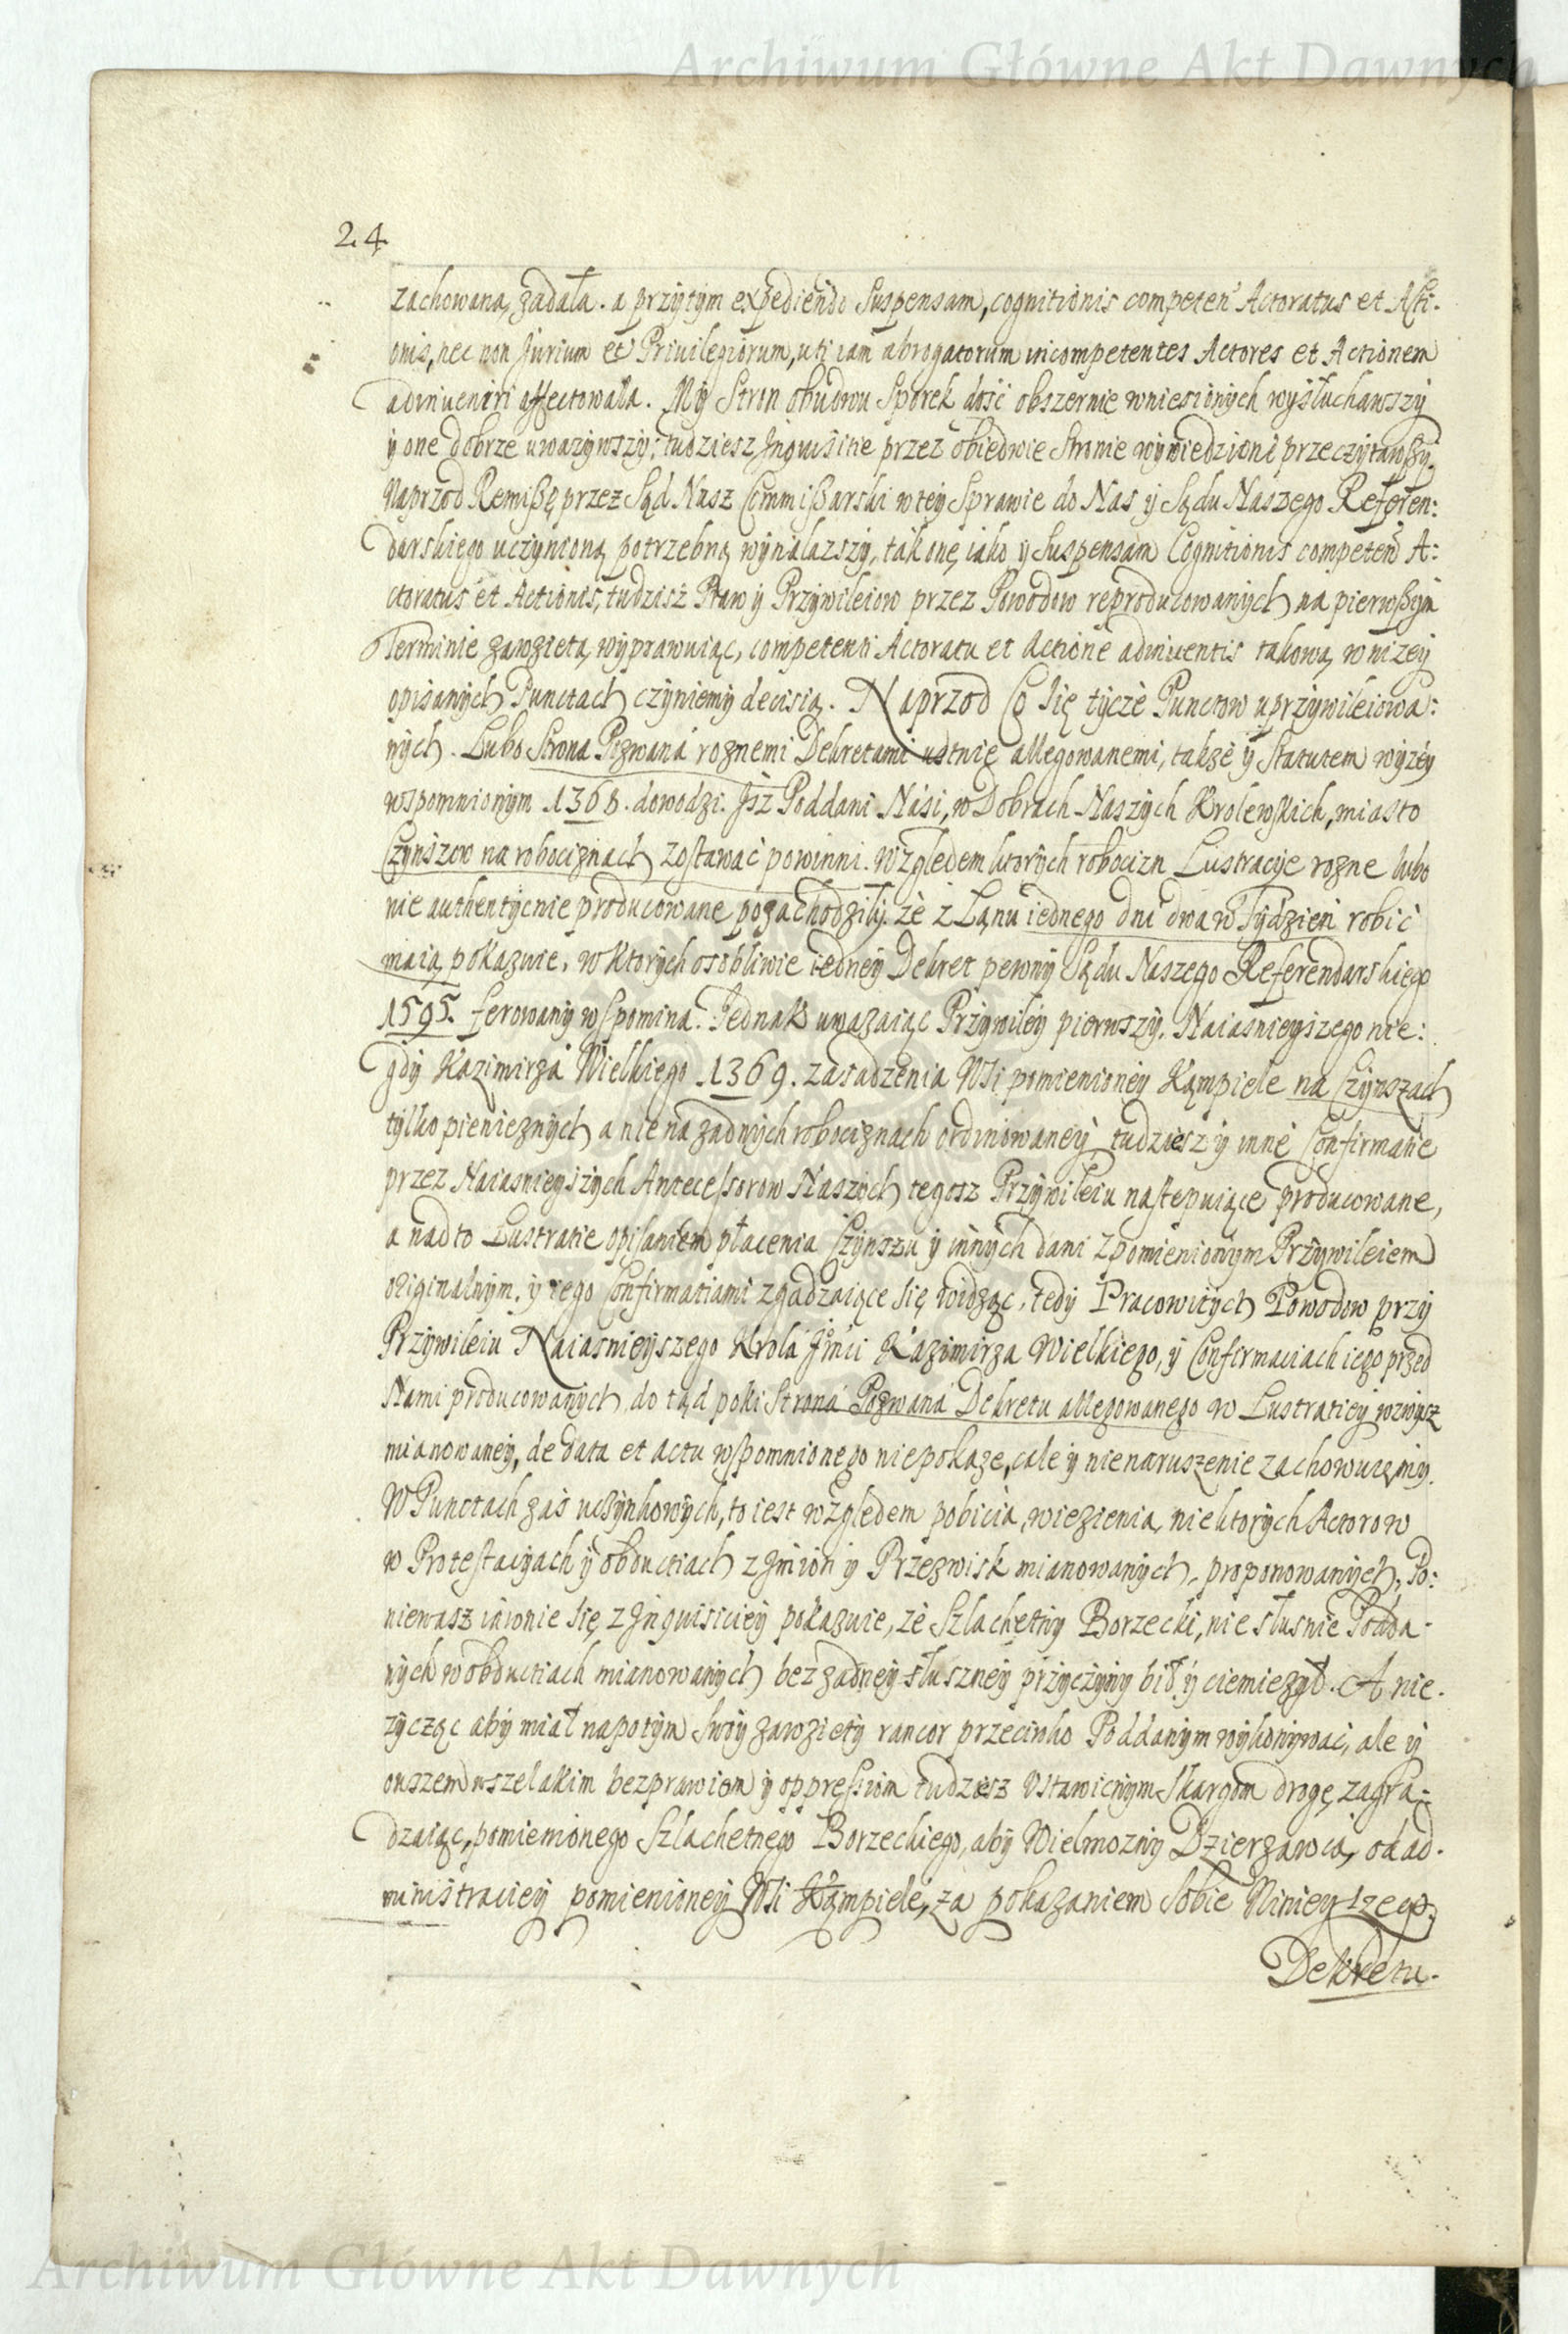 Archiwum Główne Akt Dawnych
24
zachowana, żądała. a przytym expediendo Suspensam, cognitionis competeñ Actoratus et Acti-
onis, nec non Jurium et Privilegiorum, uti iam abrogatorum incompetentes Actores et Actionem
adinveniri affectowała. My Stron obudwu Sporek dość obszernie wniesionych wysłuchawszy
y one dobrze uwazywszy, tudziesz Inquisitie przez obiedwie Stronie wywiedzione przeczytawszy.
Naprzod Remissę przez Sąd Nasz Commissarski w tey Sprawie do Nas y Sądu Naszego Referen:
darskiego uczynioną potrzebną wynalazszy, tak onę iako y Suspensam Cognitionis competeñ A:
ctoratus et Actionis, tudzisz Praw y Przywileiow przez Powodow reproducowanych na pierwszym
Terminie zawziętą wyprawuiąc, competenti Actoratu et Actione adinventis takową w nizey
opisanych Punctach czyniemy decisią. Naprzod Co się tycze Punctow uprzywileiowa:
nych. Lubo Strona Pozwana roznemi Dekretami ustnie allegowanemi, takze y Statutem wyzey
wspomnionym 1368. dowodzi. Jsz Poddani Nasi, w Dobrach Naszych Krolewskich, miasto
Czynszow na robociznach zostawać powinni. Względem ktorych robocizn Lustracye rozne lubo
nie authentycnie producowane pozachodziły. ze z Łanu iednego dni dwa w Tydzień robić
maią pokazuie, w ktorych osobliwie iedney Dekret pewny Sądu Naszego Referendarskiego
1595. ferowany wspomina. Jednak uwazaiąc Przywiley pierwszy. Naiasnieyszego nie:
gdy Kazimirza Wielkiego 1369. zasadzenia Wsi pomienioney Kąmpiele na Czynszach
tylko pienieznych a nie na zadnych robociznach ordinowaney tudziesz y inne Confirmatie
przez Naiasnieyszych Antecessorow Naszych tegosz Przywileiu nastepuiące producowane,
a nadto Lustratie opisaniem płacenia Czynszu y innych dani z pomienionym Przywileiem
originalnym. y iego Confirmatiami zgadzaiące się widząc, tedy Pracowitych Powodow przy
Przywileiu Naiasnieyszego Krola Jmci Kazimirza Wielkiego, y Confirmaciach iego przed
Nami producowanych do tąd poki Strona Pozwana Dekretu allegowanego w Lustratiey wzwysz
mianowaney, de data et actu wspomnionego niepokaze, cale y nienaruszenie zachowuiemy.
W Punctach zaś uczynkowych, to iest względem pobicia, więzienia, niektorych Actorow
w Protestacyach y obductiach z Jmion y Przezwisk mianowanych, proponowanych, Po:
niewasz iawnie się z Jnquisiciey pokazuie, ze Szlachetny Borzecki, niesłusnie Podda-
nych w obductiach mianowanych bez zadney słuszney przyczyny bił y ciemiezył. A nie-
zycząc aby miał napotym swoy zawzięty rancor przeciwko Poddanym wykonywać, ale y
owszem wszelakim bezprawiom y oppressiom tudziesz Ustawicnym Skargom drogę zagra:
dzaiąc, pomienionego Szlachetnego Borzeckiego, aby Wielmozny Dzierzawca, od ad-
ministraciey pomienioney Wsi Kąmpiele, za pokazaniem Sobie Ninieyszego
Dekretu.
Archiwum Główne Akt Dawnych